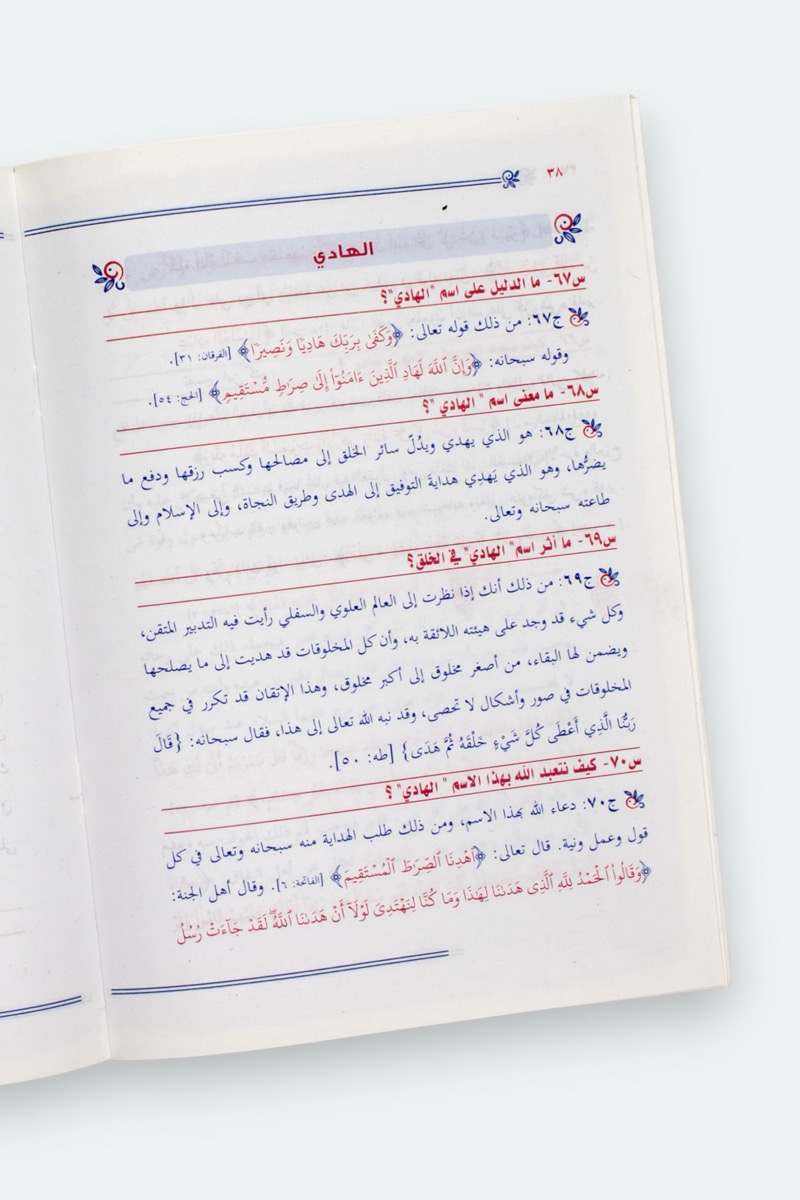 ٣٨
الهادي
س٦٧- ما الدليل على اسم "الهادي"؟
ج٦٧: من ذلك قوله تعالى: ﴿وَكَفَىٰ بِرَبِّكَ هَادِيٗا وَنَصِيرٗا﴾ [الفرقان: ٣١].
وقوله سبحانه: ﴿وَإِنَّ ٱللَّهَ لَهَادِ ٱلَّذِينَ ءَامَنُوٓاْ إِلَىٰ صِرَٰطٖ مُّسۡتَقِيمٖ﴾ [الحج: ٥٤].
س٦٨- ما معنى اسم " الهادي "؟
ج٦٨: هو الذي يهدي ويدُلّ سائر الخلق إلى مصالحها وكسب رزقها ودفع ما
يضرُّها، وهو الذي يَهدِي هدايةَ التوفيق إلى الهدى وطريق النجاة، وإلى الإسلام وإلى
طاعته سبحانه وتعالى.
س٦٩- ما أثر اسم" الهادي" في الخلق؟
ج٦٩: من ذلك أنك إذا نظرت إلى العالم العلوي والسفلي رأيت فيه التدبير المتقن،
وكل شيء قد وجد على هيئته اللائقة به، وأن كل المخلوقات قد هديت إلى ما يصلحها
ويضمن لها البقاء، من أصغر مخلوق إلى أكبر مخلوق، وهذا الإتقان قد تكرر في جميع
المخلوقات في صور وأشكال لا تحصى، وقد نبه الله تعالى إلى هذا، فقال سبحانه: {قَالَ
رَبُّنَا الَّذِي أَعْطَى كُلَّ شَيْءٍ خَلْقَهُ ثُمَّ هَدَى} [طه: ٥٠].
س٧٠- كيف نتعبد الله بهذا الاسم " الهادي" ؟
ج٧٠: دعاء الله بهذا الاسم، ومن ذلك طلب الهداية منه سبحانه وتعالى في كل
قول وعمل ونية. قال تعالى: ﴿ٱهۡدِنَا ٱلصِّرَٰطَ ٱلۡمُسۡتَقِيمَ﴾ [الفاتحة: ٦]. وقال أهل الجنة:
﴿وَقَالُواْ ٱلۡحَمۡدُ لِلَّهِ ٱلَّذِي هَدَىٰنَا لِهَٰذَا وَمَا كُنَّا لِنَهۡتَدِيَ لَوۡلَآ أَنۡ هَدَىٰنَا ٱللَّهُۖ لَقَدۡ جَآءَتۡ رُسُلُ